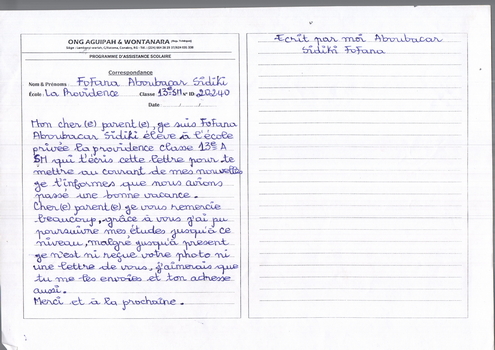 ONG AGUIPAH & WONTANARA
PROGRAMME D'ASSISTANCE SCOLAIRE
Correspondance
Nom & Prénoms Fofana Aboubacar Sidiki
École La Providence Classe 13eSM ID 20240
Date / /
Mon cher(e) parent(e), je suis Fofana
Aboubacar Sidiki élève à l'école
privée la providence classe 13e A
SM qui t'écris cette lettre pour te
mettre au courant de mes nouvelles
je t'informes que nous avions
passé une bonne vacance.
Cher(e) parent(e) je vous remercie
beaucoup, grâce à vous j'ai pu
poursuivre mes études jusqu'à ce
niveau, malgré jusqu'à présent
je n'est ni reçue votre photo ni
une lettre de vous, j'aimerais que
tu me les envoies et ton adresse
aussi.
Merci et à la prochaine.
Ecrit par moi Aboubacar
Sidiki Fofana